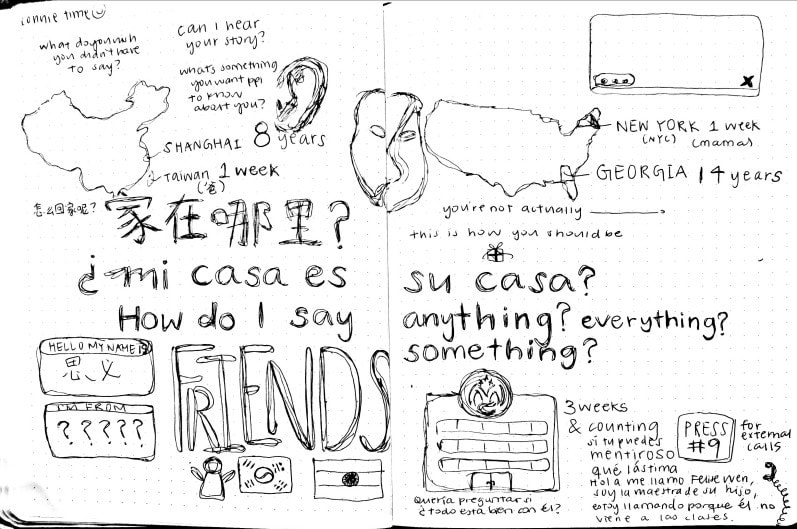 connie time
what do you wish
you didn't have
to say?
can I hear
your story?
what's something
you want ppl
to know
about you?
SHANGHAI 8 years
TAIWAN 1 week
(爸)
怎么回家呢?
家在哪里?
¿mi casa es
How do I say
HELLO MY NAME IS
思义
I'M FROM
?????
FRIENDS
NEW YORK 1 week
(NYC) (mamas)
GEORGIA 14 years
you're not actually ______.
this is how you should be
su casa?
anything? everything?
something?
3 weeks
& counting
si tu puedes
mentiroso
qué lástima
Hola me llamo Felie Wen,
soy la maestra de su hijo,
estoy llamando porque él no
viene a las clases.
PRESS
#9
for
external
calls
Quería preguntar si
¿todo está bien con él?